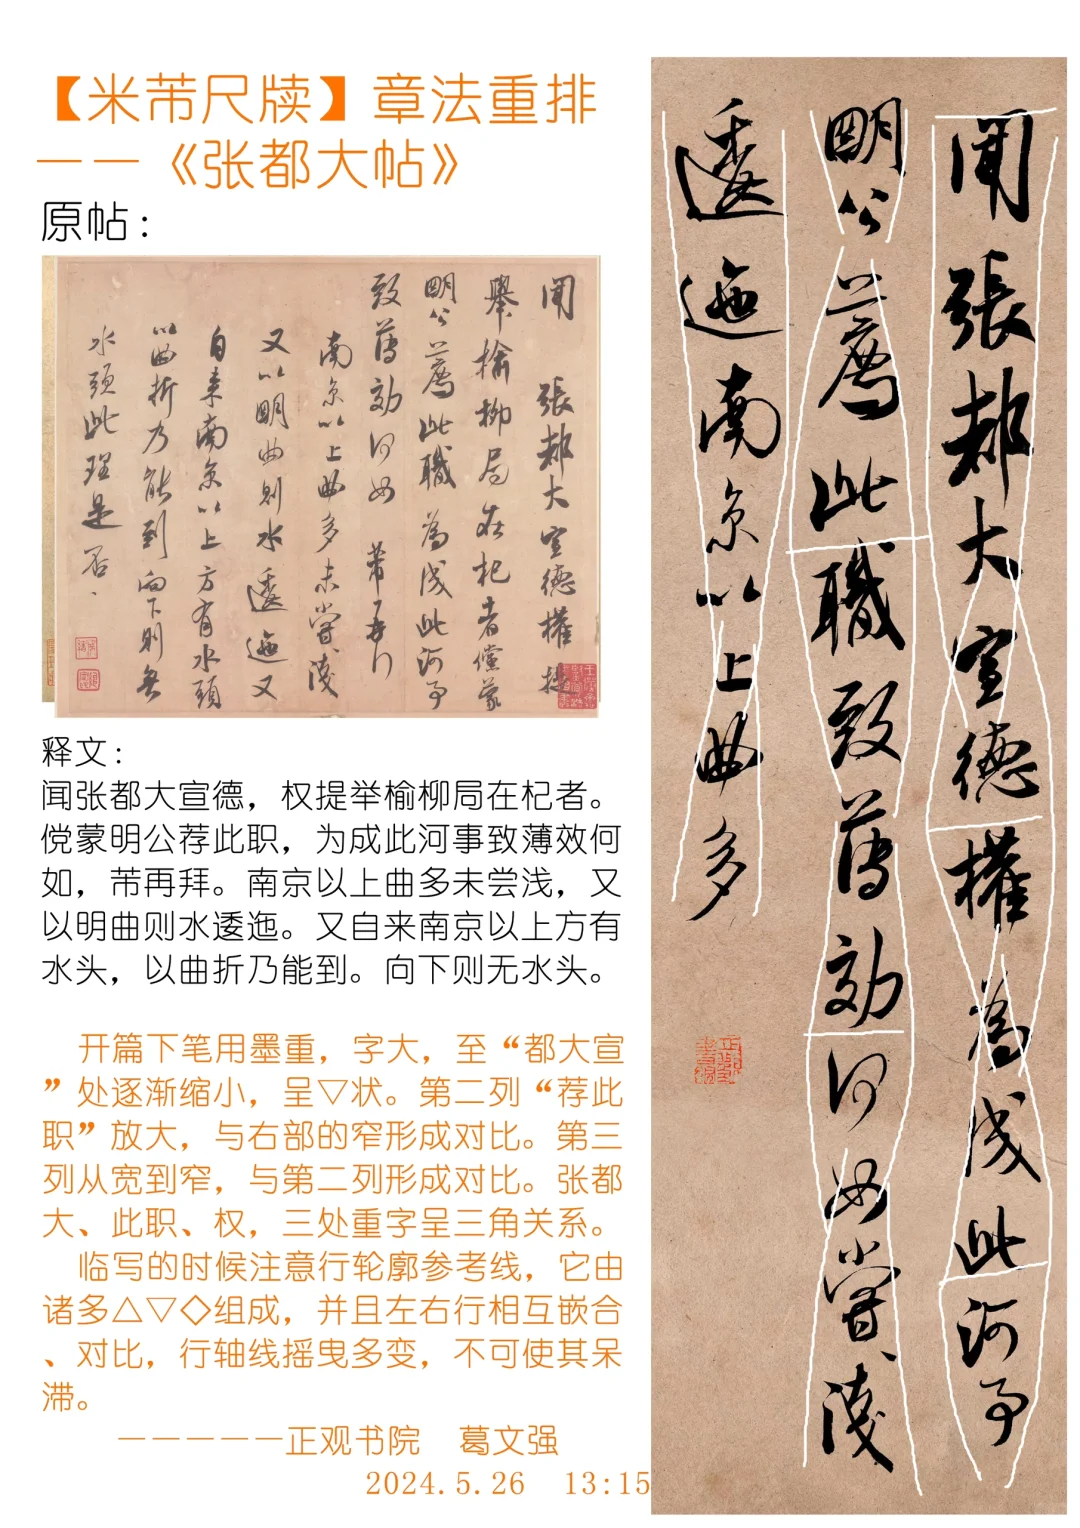 【米芾尺牍】章法重排
——《张都大帖》
原帖：
聞 張都大宣德權提
舉榆柳局在杞者儻蒙
明公薦此職為成此河事
致薄効何如 芾再拜
南京以上曲多未嘗淺
又以明曲則水逶迤又
自来南京以上方有水頭
以曲折乃能到向下則無
水頭此理是否、
释文：
闻张都大宣德，权提举榆柳局在杞者。
傥蒙明公荐此职，为成此河事致薄效何
如，芾再拜。南京以上曲多未尝浅，又
以明曲则水逶迤。又自来南京以上方有
水头，以曲折乃能到。向下则无水头。
开篇下笔用墨重，字大，至“都大宣
”处逐渐缩小，呈▽状。第二列“荐此
职”放大，与右部的窄形成对比。第三
列从宽到窄，与第二列形成对比。张都
大、此职、权，三处重字呈三角关系。
临写的时候注意行轮廓参考线，它由
诸多△▽◇组成，并且左右行相互嵌合
、对比，行轴线摇曳多变，不可使其呆
滞。
—————正观书院 葛文强
2024.5.26 13:15
聞張都大宣德權為成此河事
明公薦此職致薄効何如嘗淺
逶迤南京以上曲多